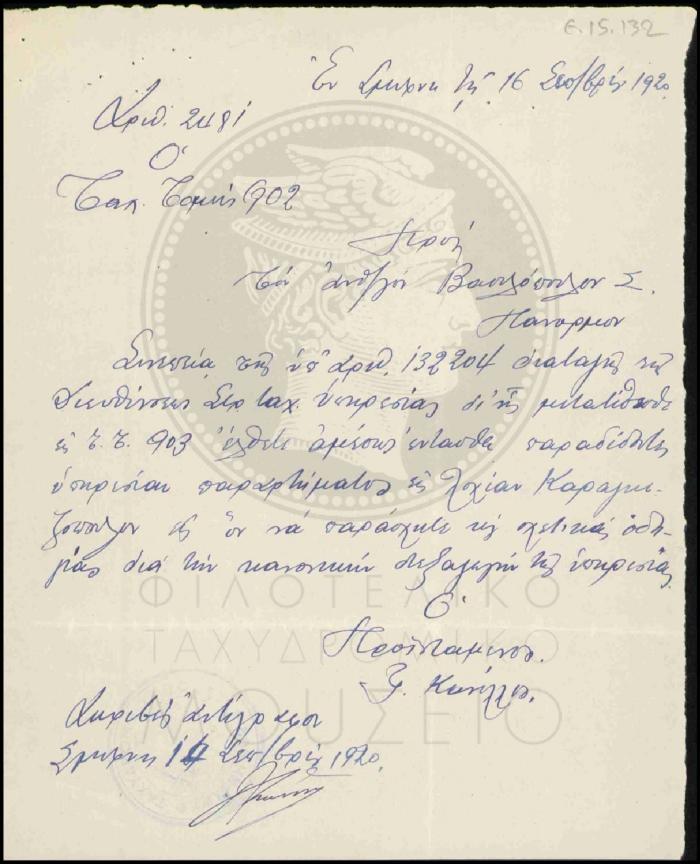 6.15.132
Ἐν Σμύρνῃ τῇ 16 Σεπ/βρίου 1920
Ἀριθ. 2481
Ὁ
Ταχ. Τομεύς 902
Πρός
Τόν ἀνθ/γόν Βασιλόπουλον Σ.
Πάνορμον
Συνεπείᾳ τῆς ὑπ' ἀριθ. 132204 διαταγῆς τῆς
Διευθύνσεως Στρ. ταχ. ὑπηρεσίας δι' ἧς μετατίθεσθε
εἰς Τ.Τ. 903 ἔλθετε ἀμέσως ἐνταῦθα παραδίδοντες
ὑπηρεσίαν παραρτήματος εἰς λοχίαν Καραγκι-
ζόπουλον εἰς ὅν νά παράσχητε τάς σχετικάς ὁδη-
γίας διά τήν κανονικήν διεξαγωγήν τῆς ὑπηρεσίας.
Ὁ
Προϊστάμενος
Κανέλλος
Ἀκριβές ἀντίγραφον
Σμύρνη 14 Σεπ/βρίου 1920
ΦΙΛΟΤΕΛΙΚΟ
ΤΑΧΥΔΡΟΜΙΚΟ
ΜΟΥΣΕΙΟ